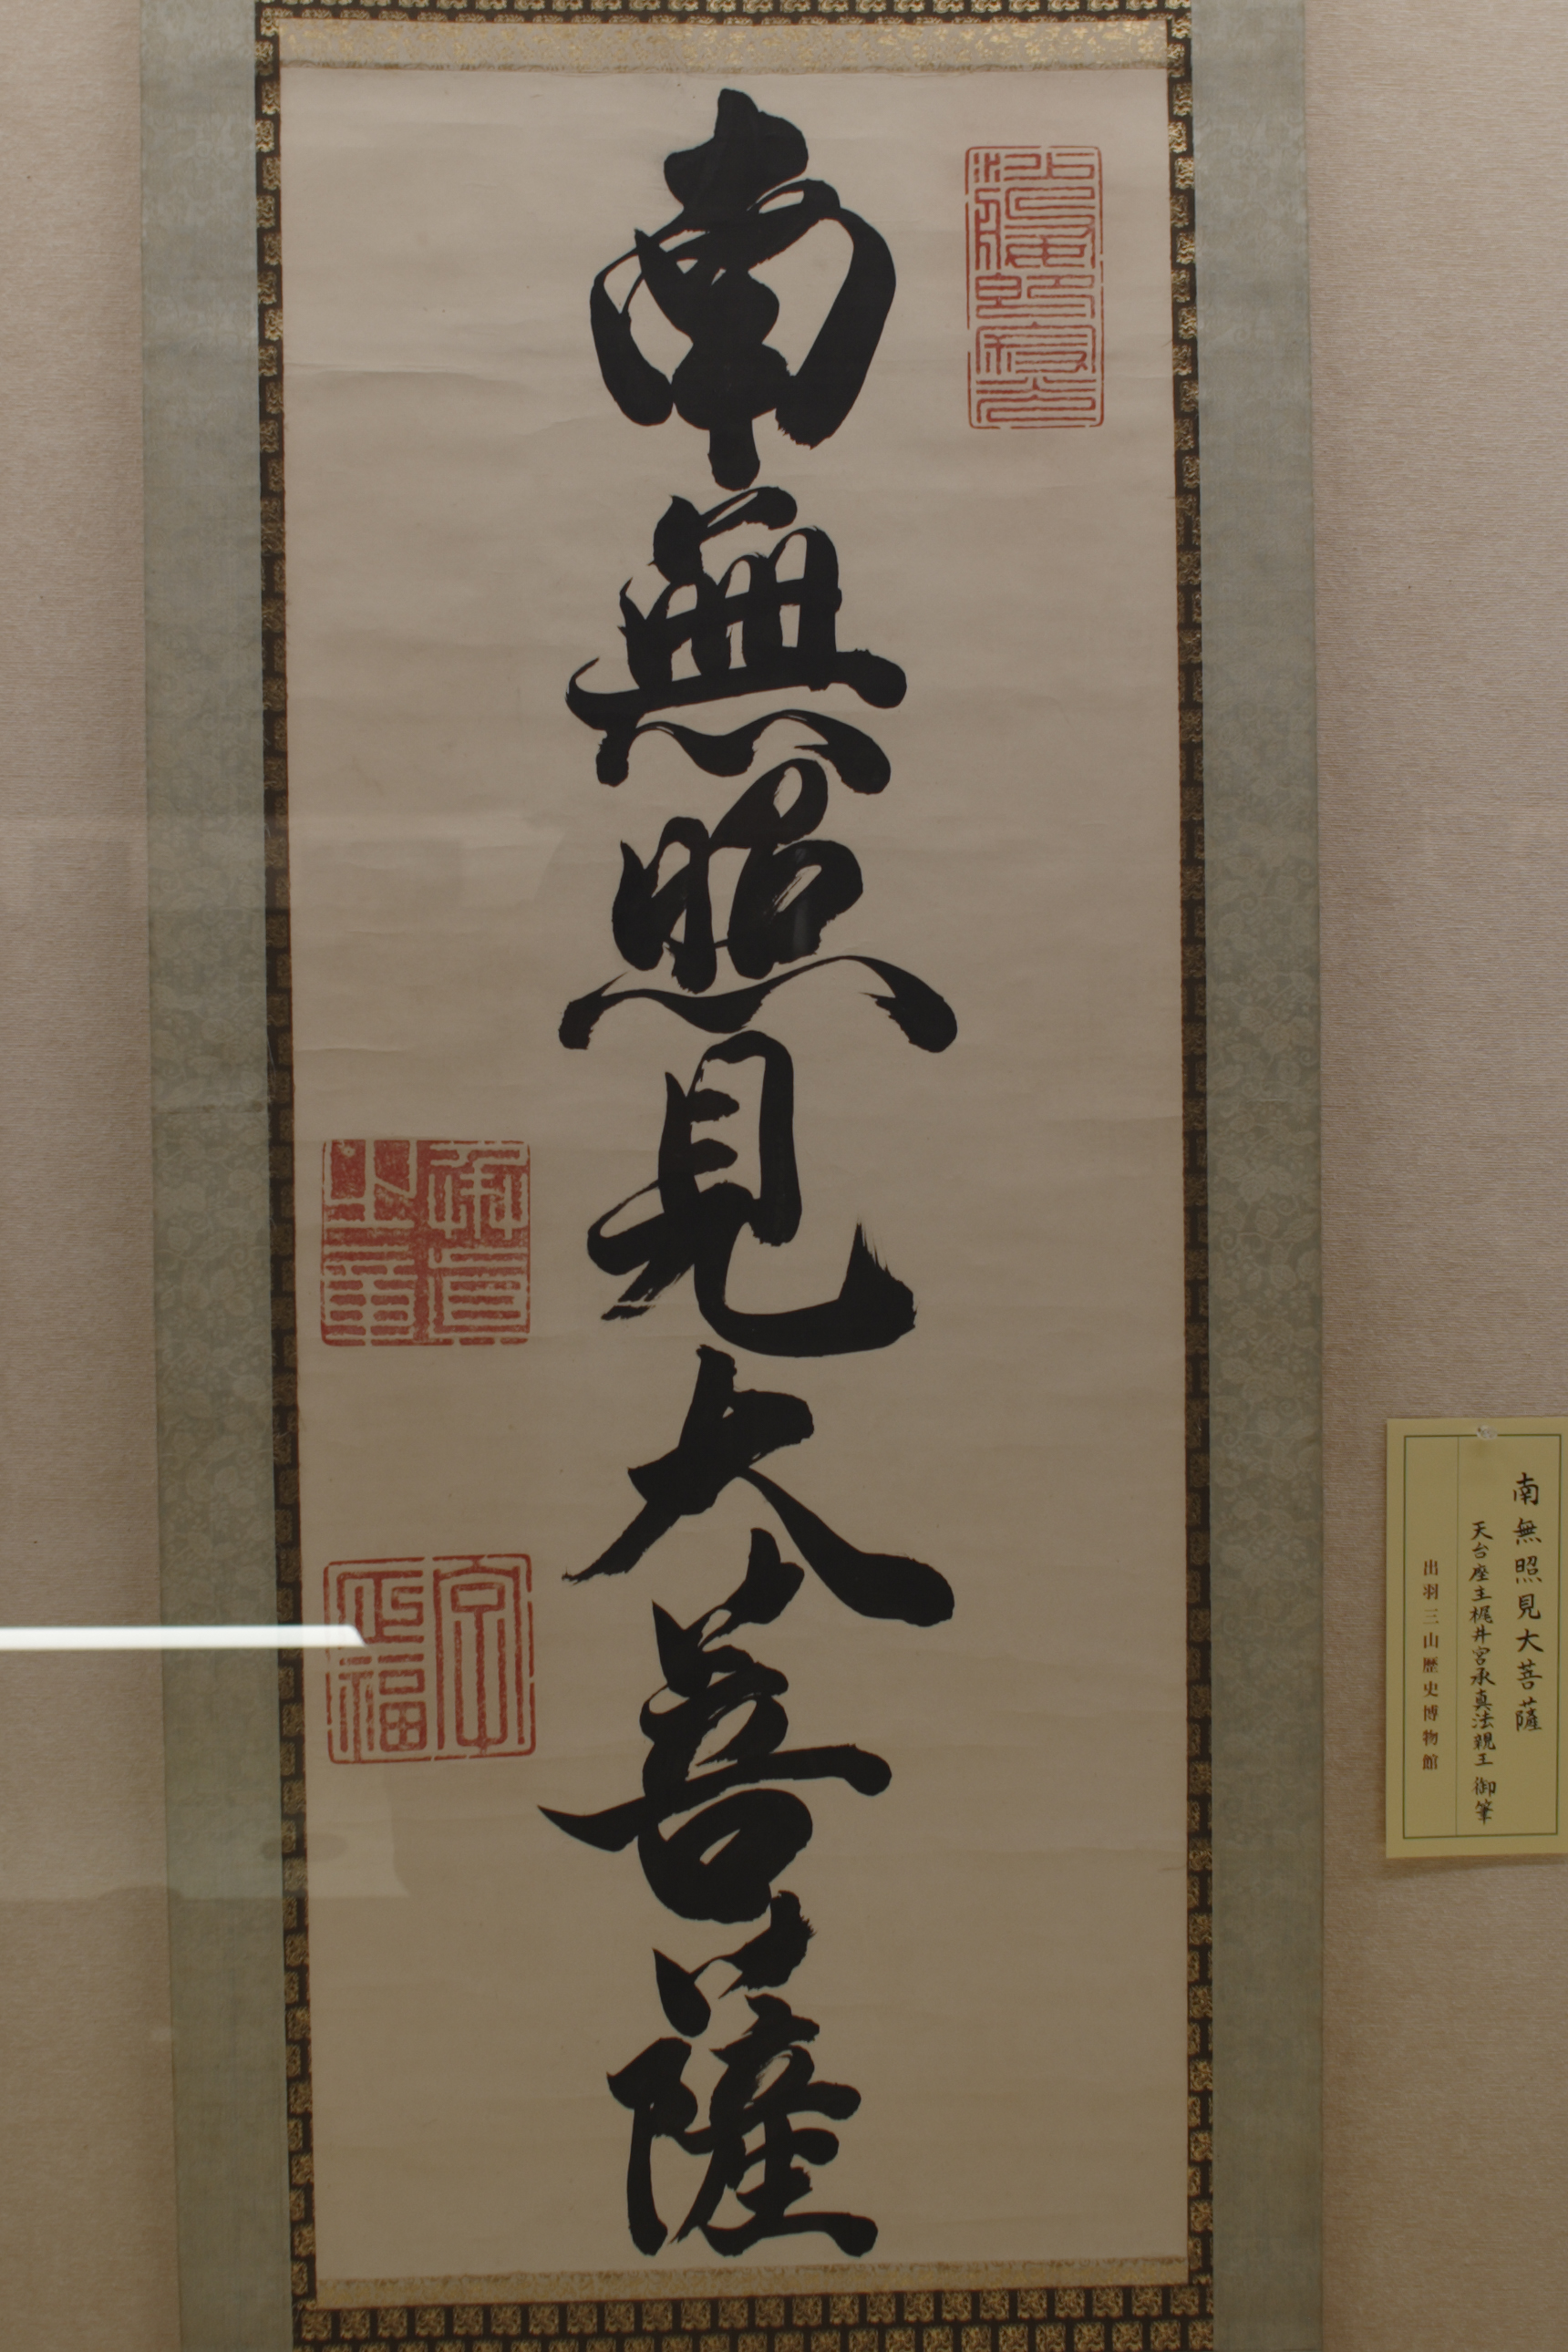 南無照見大菩薩
承眞之章
南無照見大菩薩
天台座主梶井宮承真法親王 御筆
出羽三山歴史博物館